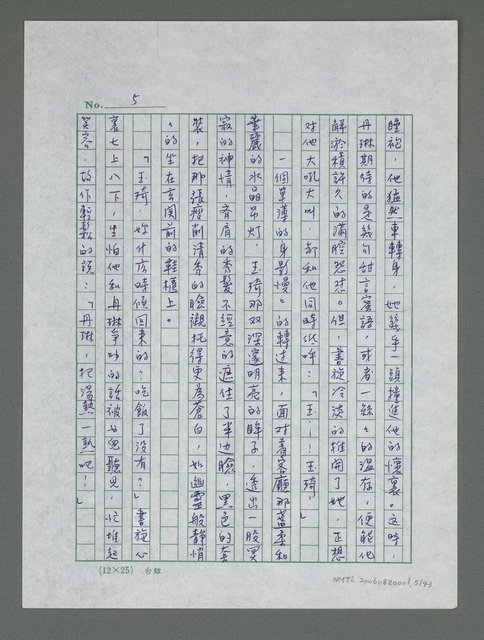 No. 5
睡袍，他猛然車轉身，她幾乎一頭撞進他的懷裏。這時，
丹琳期待的是幾句甜言蜜語，或者一絲絲的溫存，便能化
解淤積許久的滿腔怨懟。但，書旋冷淡的推開了她，正想
對他大吼大叫，卻和他同時低呼：「玉……玉琦！」
一個單薄的身影慢慢的轉過來，面對着客廳那盞柔和
華麗的水晶吊灯，玉琦那双深邃明亮的眸子，透出一股冥
寂的神情，齊肩的秀髮不經意的遮住了半边臉，黑色的套
裝，把那張瘦削清秀的臉襯托得更為蒼白，如幽靈般靜悄
悄的坐在玄関前的鞋櫃上。
「玉琦，妳什広時候回來的？吃飯了沒有？」書旋心
裏七上八下，生怕他和丹琳爭吵的話被女兒聽見，忙堆起
笑容，故作輕鬆的說：「丹琳，把湯熱一熱吧！」
(12×25) 台組
NMTL 20060820001, 5/43